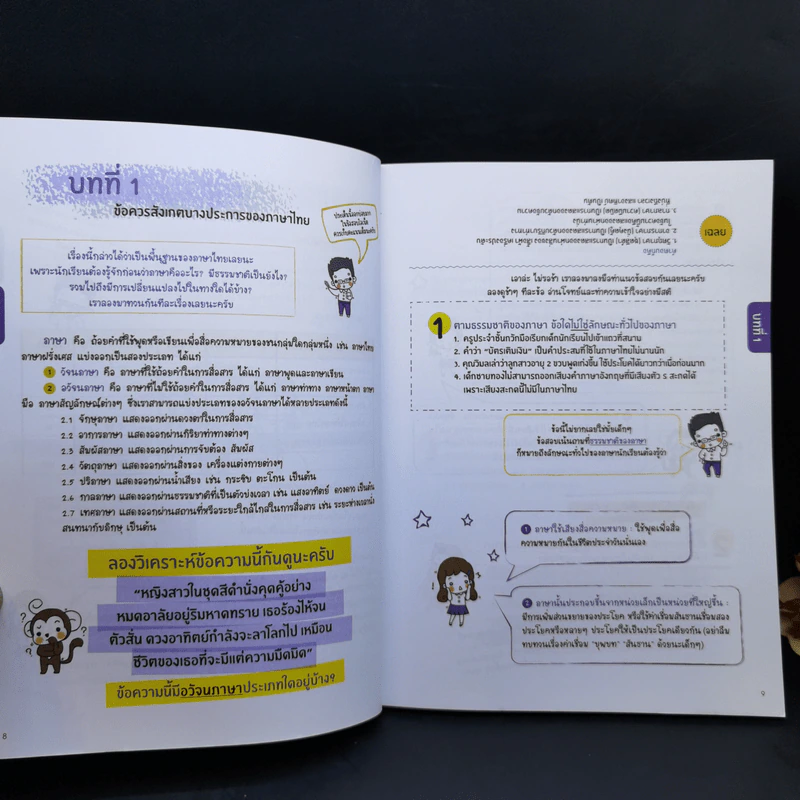 บทที่ 1
ข้อควรสังเกตบางประการของภาษาไทย
เรื่องนี้กล่าวได้ว่าเป็นพื้นฐานของภาษาไทยเลยนะ
เพราะนักเรียนต้องรู้จักก่อนว่าภาษาคืออะไร? มีธรรมชาติเป็นยังไง?
รวมไปถึงมีการเปลี่ยนแปลงไปในทางใดได้บ้าง?
เราลองมาทวนกันทีละเรื่องเลยนะครับ
ภาษา คือ ถ้อยคำที่ใช้พูดหรือเขียนเพื่อสื่อความหมายของชนกลุ่มใดกลุ่มหนึ่ง เช่น ภาษาไทย
ภาษาฝรั่งเศส แบ่งออกเป็นสองประเภท ได้แก่
1 วัจนภาษา คือ ภาษาที่ใช้ถ้อยคำในการสื่อสาร ได้แก่ ภาษาพูดและภาษาเขียน
2 อวัจนภาษา คือ ภาษาที่ไม่ใช้ถ้อยคำในการสื่อสาร ได้แก่ ภาษาท่าทาง ภาษาหน้าตา ภาษา
มือ ภาษาสัญลักษณ์ต่างๆ ซึ่งเราสามารถแบ่งประเภทของอวัจนภาษาได้หลายประเภทดังนี้
2.1 จักษุภาษา แสดงออกผ่านดวงตาในการสื่อสาร
2.2 อาการภาษา แสดงออกผ่านกิริยาท่าทางต่างๆ
2.3 สัมผัสภาษา แสดงออกผ่านการจับต้อง สัมผัส
2.4 วัตถุภาษา แสดงออกผ่านสิ่งของ เครื่องแต่งกายต่างๆ
2.5 ปริภาษา แสดงออกผ่านน้ำเสียง เช่น กระซิบ ตะโกน เป็นต้น
2.6 กาลภาษา แสดงออกผ่านธรรมชาติที่เป็นตัวบ่งเวลา เช่น แสงอาทิตย์ ดวงดาว เป็นต้น
2.7 เทศภาษา แสดงออกผ่านสถานที่หรือระยะใกล้ไกลในการสื่อสาร เช่น ระยะห่างเวลานั่ง
สนทนากับภิกษุ เป็นต้น
ลองวิเคราะห์ข้อความนี้กันดูนะครับ
"หญิงสาวในชุดสีดำนั่งคุดคู้อย่าง
หมดอาลัยอยู่ริมหาดทราย เธอร้องไห้จน
ตัวสั่น ดวงอาทิตย์กำลังจะลาโลกไป เหมือน
ชีวิตของเธอที่จะมีแต่ความมืดมิด"
ข้อความนี้มีอวัจนภาษาประเภทใดอยู่บ้าง?
8
เฉลย
เอาล่ะ ไม่รอช้า เราลองมาลองมือทำแนวข้อสอบกันเลยนะครับ
ลองดูช้าๆ ทีละข้อ อ่านโจทย์และทำความเข้าใจอย่างมีสติ
บทที่ 1
1 ตามธรรมชาติของภาษา ข้อใดไม่ใช่ลักษณะทั่วไปของภาษา
1. ครูประจำชั้นทวีกมือเรียกเด็กนักเรียนไปเข้าแถวที่สนาม
2. คำว่า "บัตรเติมเงิน" เป็นคำประสมที่ใช้ในภาษาไทยไม่นานนัก
3. คุณวิมลเล่าว่าลูกสาวอายุ 2 ขวบพูดเก่งขึ้น ใช้ประโยคได้ยาวกว่าเมื่อก่อนมาก
4. เด็กชายทองไม่สามารถออกเสียงคำภาษาอังกฤษที่มีเสียงตัว s สะกดได้
เพราะเสียงสะกดนี้ไม่มีในภาษาไทย
ข้อนี้ไม่ยากเลยใช่มั้ยเด็กๆ
ข้อสอบเน้นถามที่ธรรมชาติของภาษา
ก็หมายถึงลักษณะทั่วไปของภาษานักเรียนต้องรู้ว่า
1 ภาษาใช้เสียงสื่อความหมาย : ใช้พูดเพื่อสื่อ
ความหมายกันในชีวิตประจำวันนั่นเอง
2 ภาษานั้นประกอบขึ้นจากหน่วยเล็กเป็นหน่วยที่ใหญ่ขึ้น :
มีการเพิ่มส่วนขยายของประโยค หรือใช้คำเชื่อมสันธานเชื่อมสอง
ประโยคหรือหลายๆ ประโยคให้เป็นประโยคเดียวกัน (อย่าลืม
ทบทวนเรื่องคำเชื่อม "บุพบท" "สันธาน" ด้วยนะเด็กๆ)
9